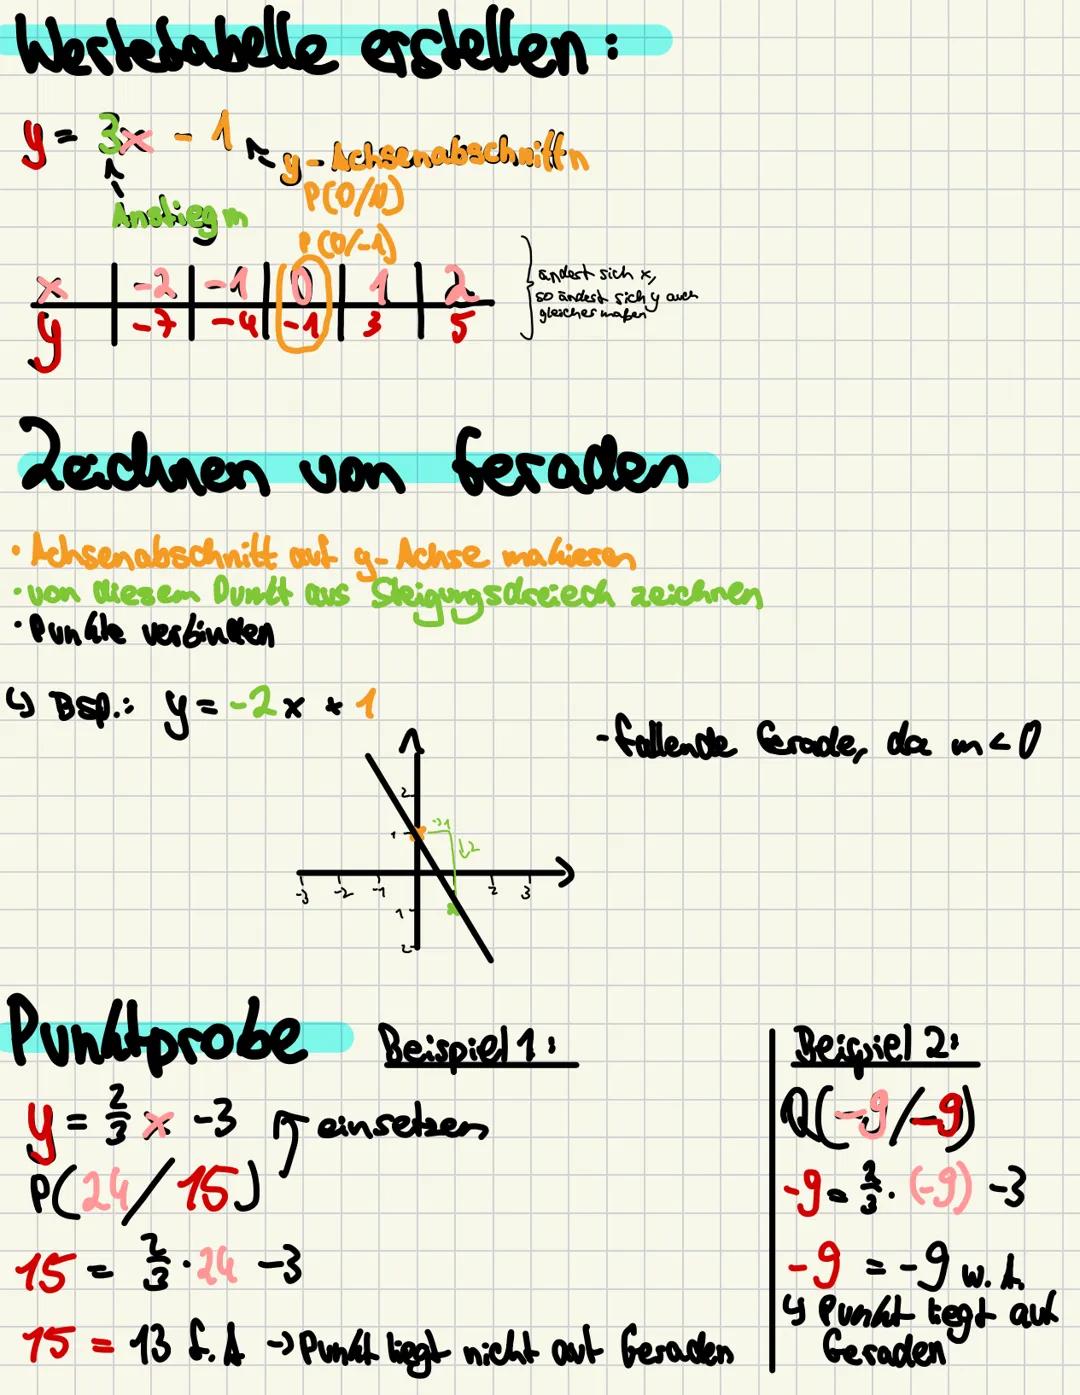 Wertetabelle erstellen:
y = 3x - 1
y-Achsenabschnitt n
P(0/n)
Anstieg m
P(0/-1)
x | -2 | -1 | 0 | 1 | 2
y | -7 | -4 | -1 | 3 | 5
ändert sich x,
so ändert sich y auch
gleichermaßen
Zeichnen von Geraden
• Achsenabschnitt auf y-Achse makieren
• von diesem Punkt aus Steigungsdreieck zeichnen
• Punkte verbinden
↳ Bsp.: y = -2x + 1
- fallende Gerade, da m < 0
2
1
→1
↓2
-3 -2 -1 2 3
1
2
Punktprobe
Beispiel 1:
y = 2/3 x - 3
einsetzen
P(24/15)
15 = 2/3 · 24 - 3
15 = 13 f.A → Punkt liegt nicht auf Geraden
Beispiel 2:
Q(-9/-9)
-9 = 2/3 · (-9) - 3
-9 = -9 w.A.
↳ Punkt liegt auf
Geraden